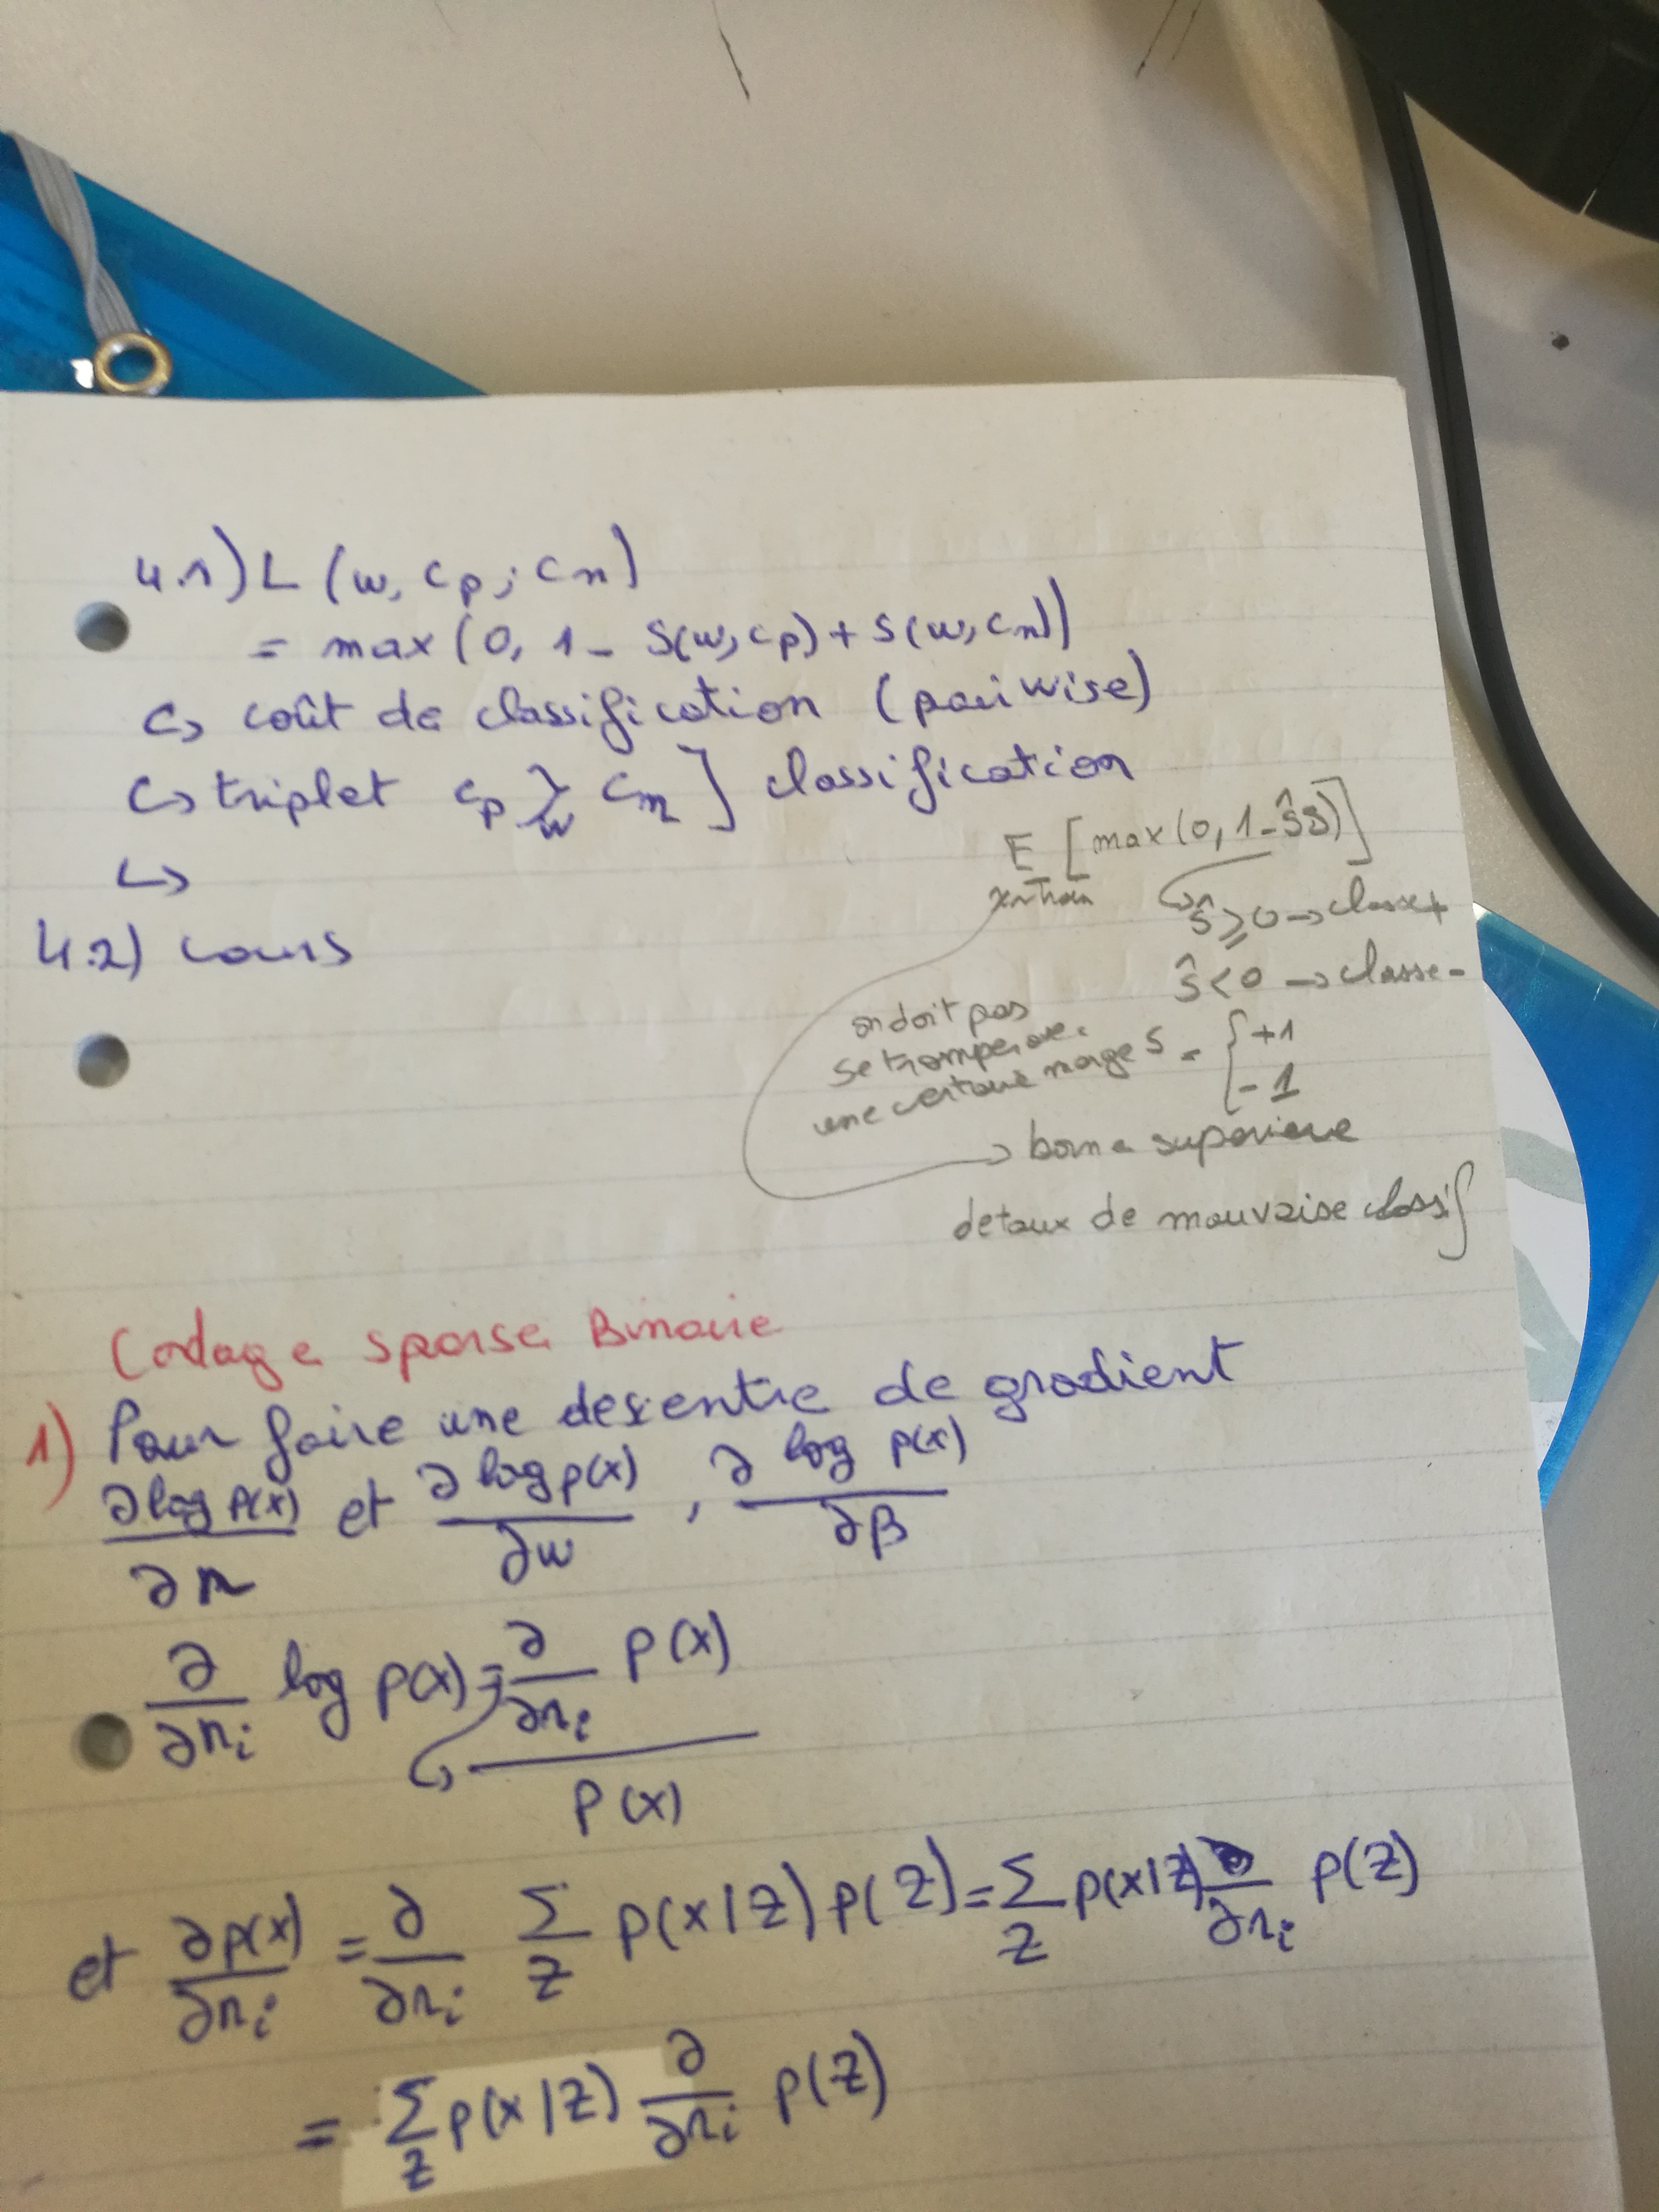 4.1) L (w, cp; cn)
= max (0, 1 - S(w, cp) + S(w, cn))
↪ coût de classification (pairwise)
↪ triplet cp ≥w cn ] classification
↪
4.2) cours
E [max(0, 1-ŝs)]
x~train
ŝ ≥ 0 → classe +
ŝ < 0 → classe -
on doit pas
se tromper avec
une certaine marge
s = { +1
-1
→ borne superieure
de taux de mauvaise classif
Codage sparse Binaire
1) Pour faire une descente de gradient
∂log p(x)/∂π et ∂log p(x)/∂w , ∂log p(x)/∂β
∂/∂πi log p(x) = ∂/∂πi p(x)
p(x)
et ∂p(x)/∂πi = ∂/∂πi Σz p(x|z) p(z) = Σz p(x|z) ∂/∂πi p(z)
= Σz p(x|z) ∂/∂πi p(z)